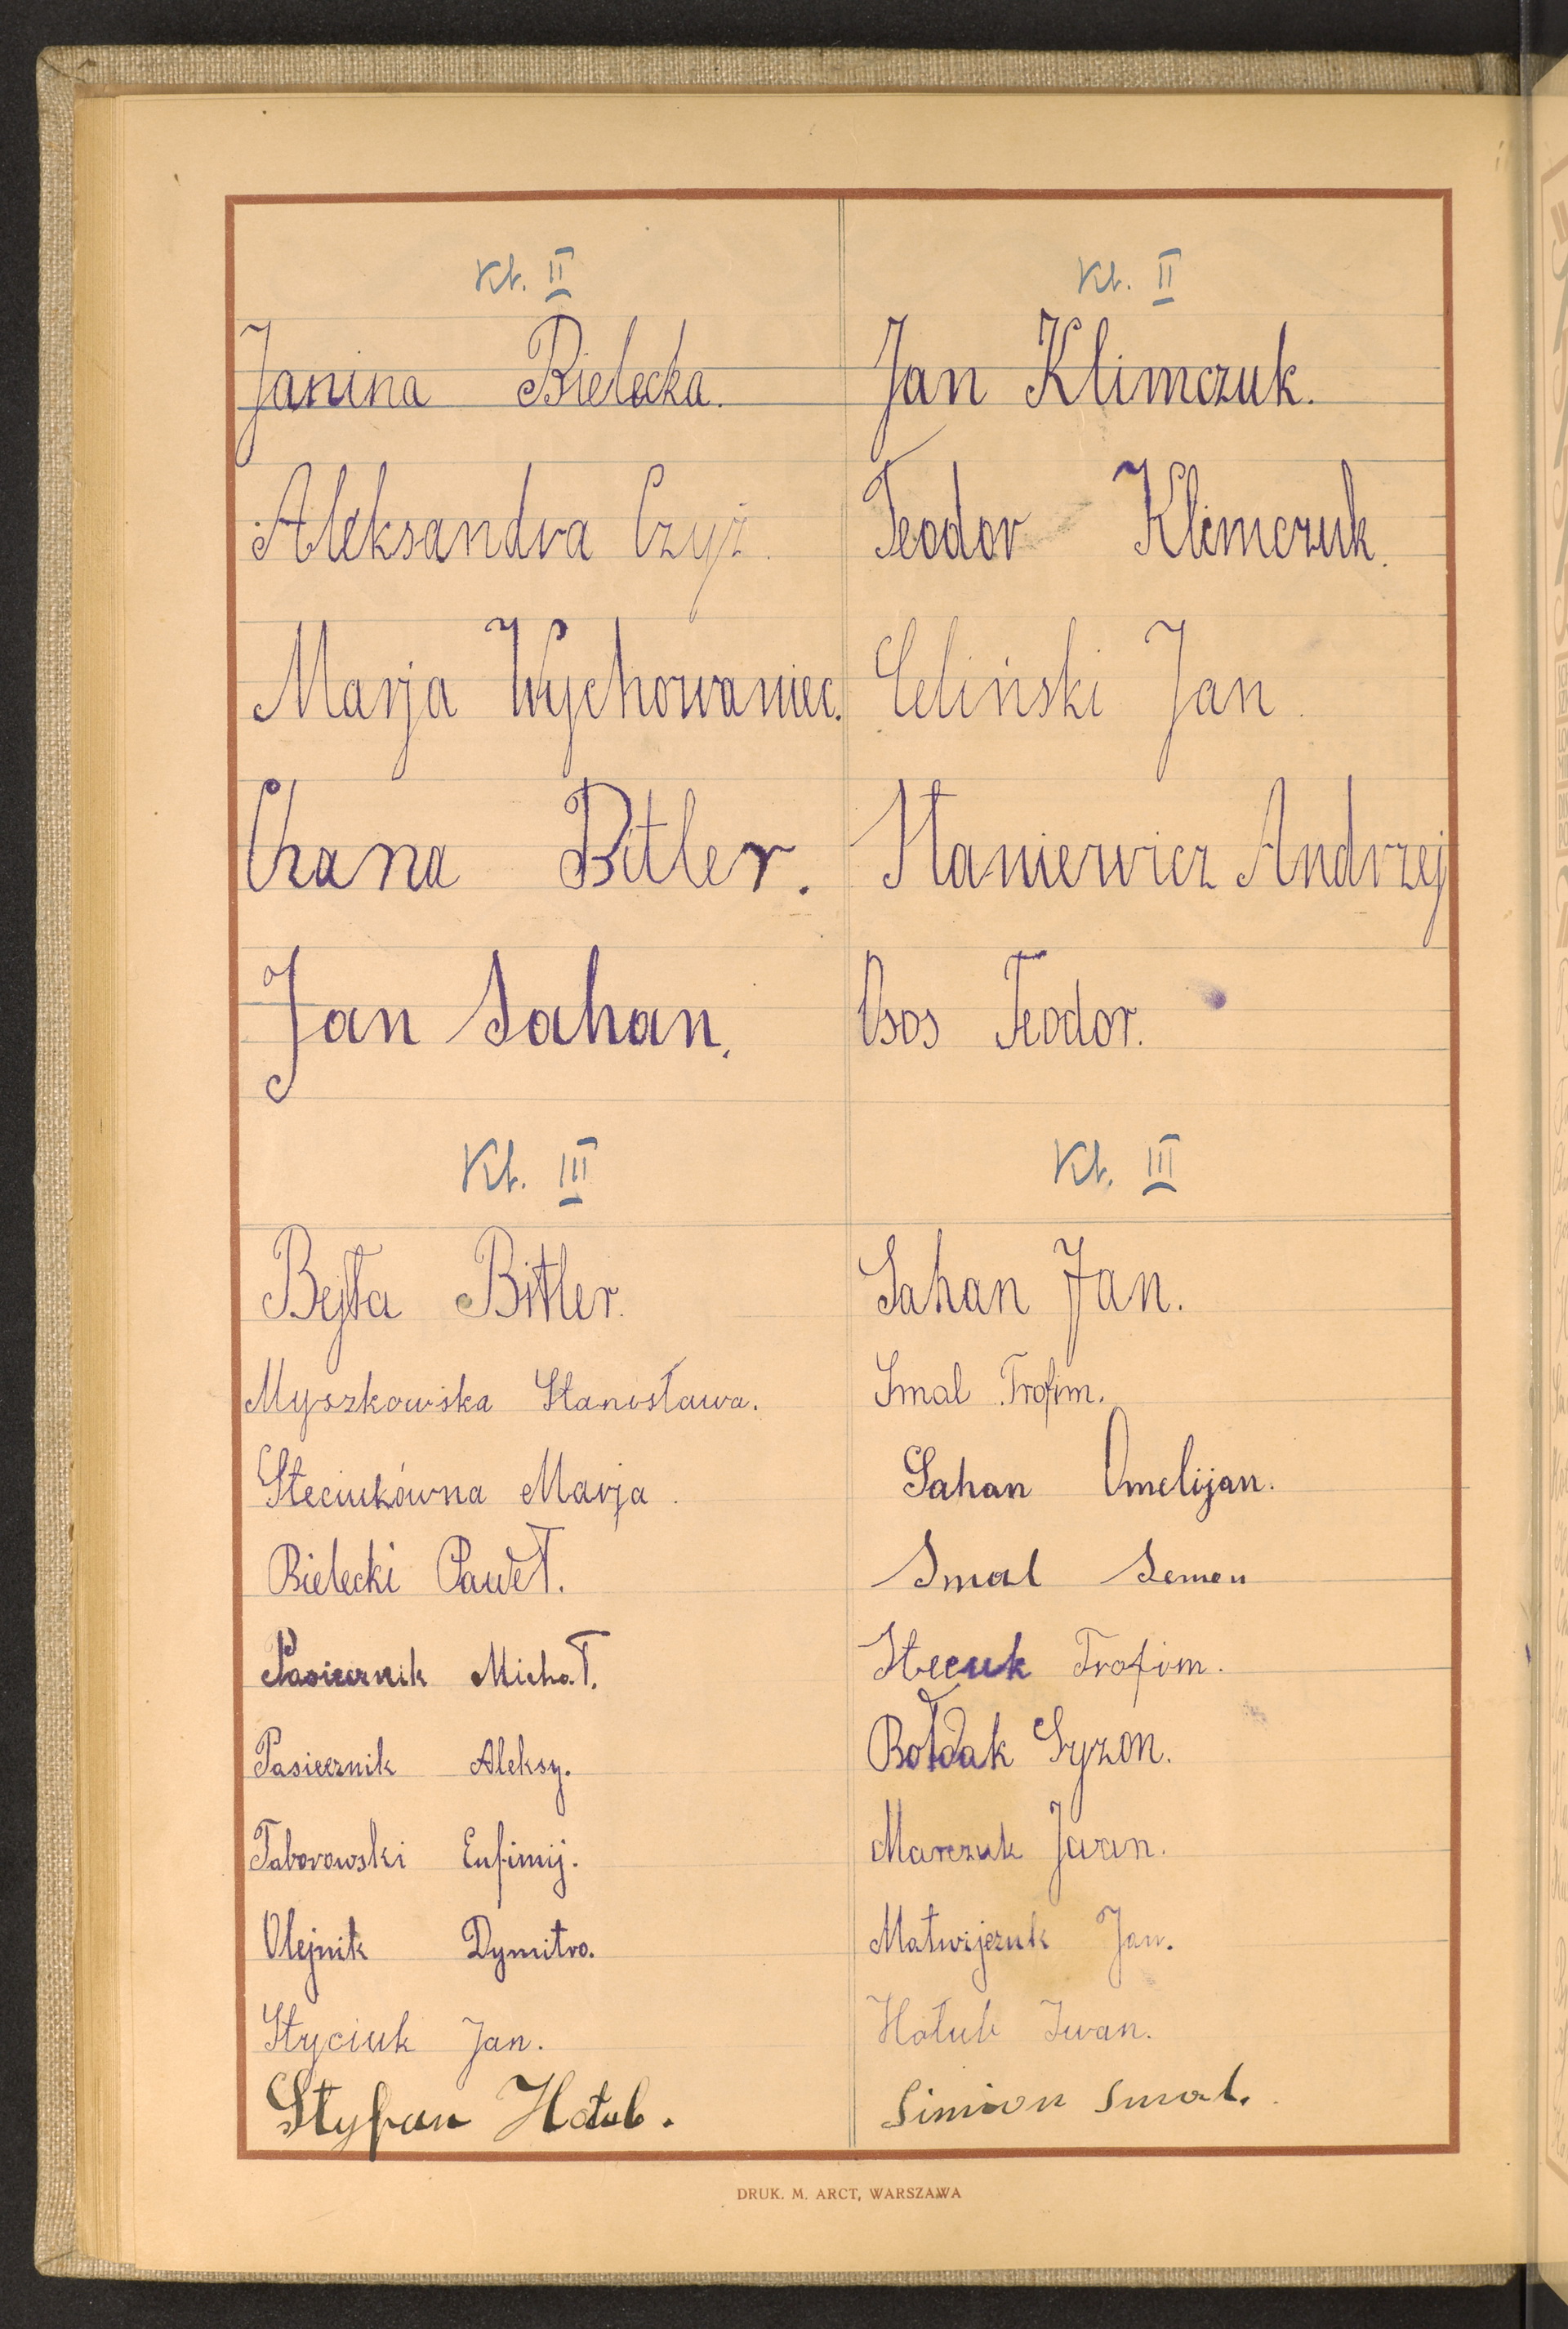 Kl. II
Janina Bielecka.
Aleksandra Czyż.
Marja Wychowaniec.
Chana Bitler.
Jan Sahan.
Kl. III
Bejła Bitler.
Myszkowska Stanisława.
Steciukówna Marja.
Bielecki Paweł.
Pasiecznik Michał.
Pasiecznik Aleksy.
Taborowski Eufimij.
Olejnik Dymitro.
Styciuk Jan.
Styfan Hołub.
Kl. II
Jan Klimczuk.
Teodor Klimczuk.
Celiński Jan.
Staniewicz Andrzej
Osos Teodor.
Kl. III
Sahan Jan.
Smal Trofim.
Sahan Omelijan.
Smal Semen
Stecuk Trofim.
Bołdak Syzon.
Marczuk Jwan.
Matwijczuk Jan.
Hołub Iwan.
Simion Smal.
DRUK. M. ARCT, WARSZAWA